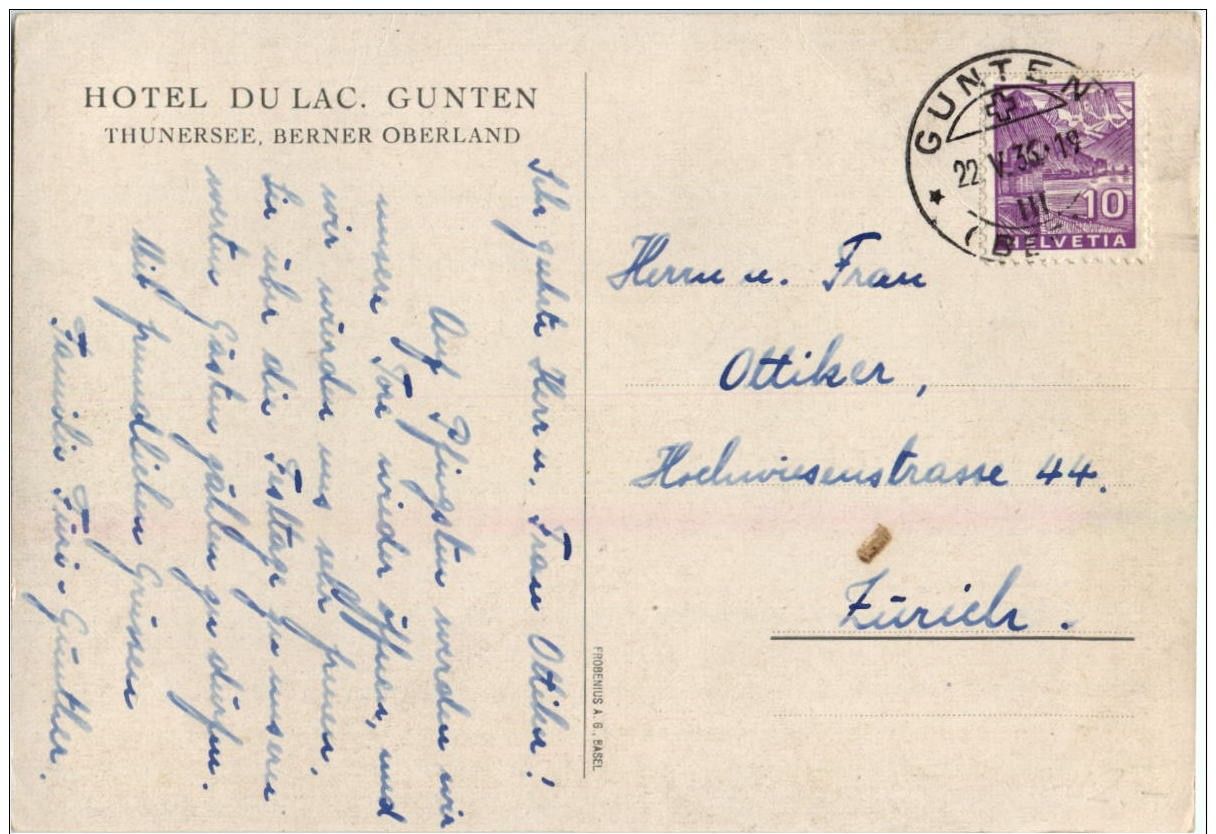 HOTEL DU LAC. GUNTEN
THUNERSEE, BERNER OBERLAND
Sehr geehrte Herr u. Frau Ottiker!
Auf Pfingsten werden wir
unsere Tore wieder öffnen, und
wir würden uns sehr freuen,
Sie über die Festtage zu unseren
werten Gästen zählen zu dürfen.
Mit freundlichen Grüssen
Familie Füri-Günther.
FROBENIUS A.G., BASEL
GUNTEN
22.V.36.-19
III
(BE
10
HELVETIA
Herrn u. Frau
Ottiker,
Hochwiesenstrasse 44.
Zürich.